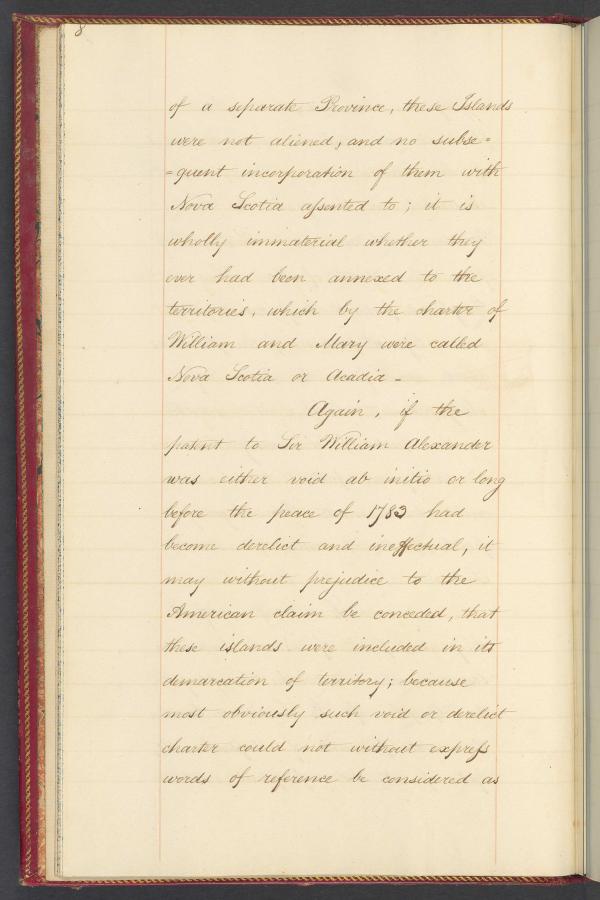 8
of a separate Province, these Islands
were not aliened, and no subse=
=quent incorporation of them with
Nova Scotia assented to; it is
wholly immaterial whether they
ever had been annexed to the
territories, which by the charter of
William and Mary were called
Nova Scotia or Acadia -
Again, if the
patent to Sir William Alexander
was either void ab initio or long
before the peace of 1783 had
become derelict and ineffectual, it
may without prejudice to the
American claim be conceded, that
these islands were included in its
demarcation of territory; because
most obviously such void or derelict
charter could not without express
words of reference be considered as